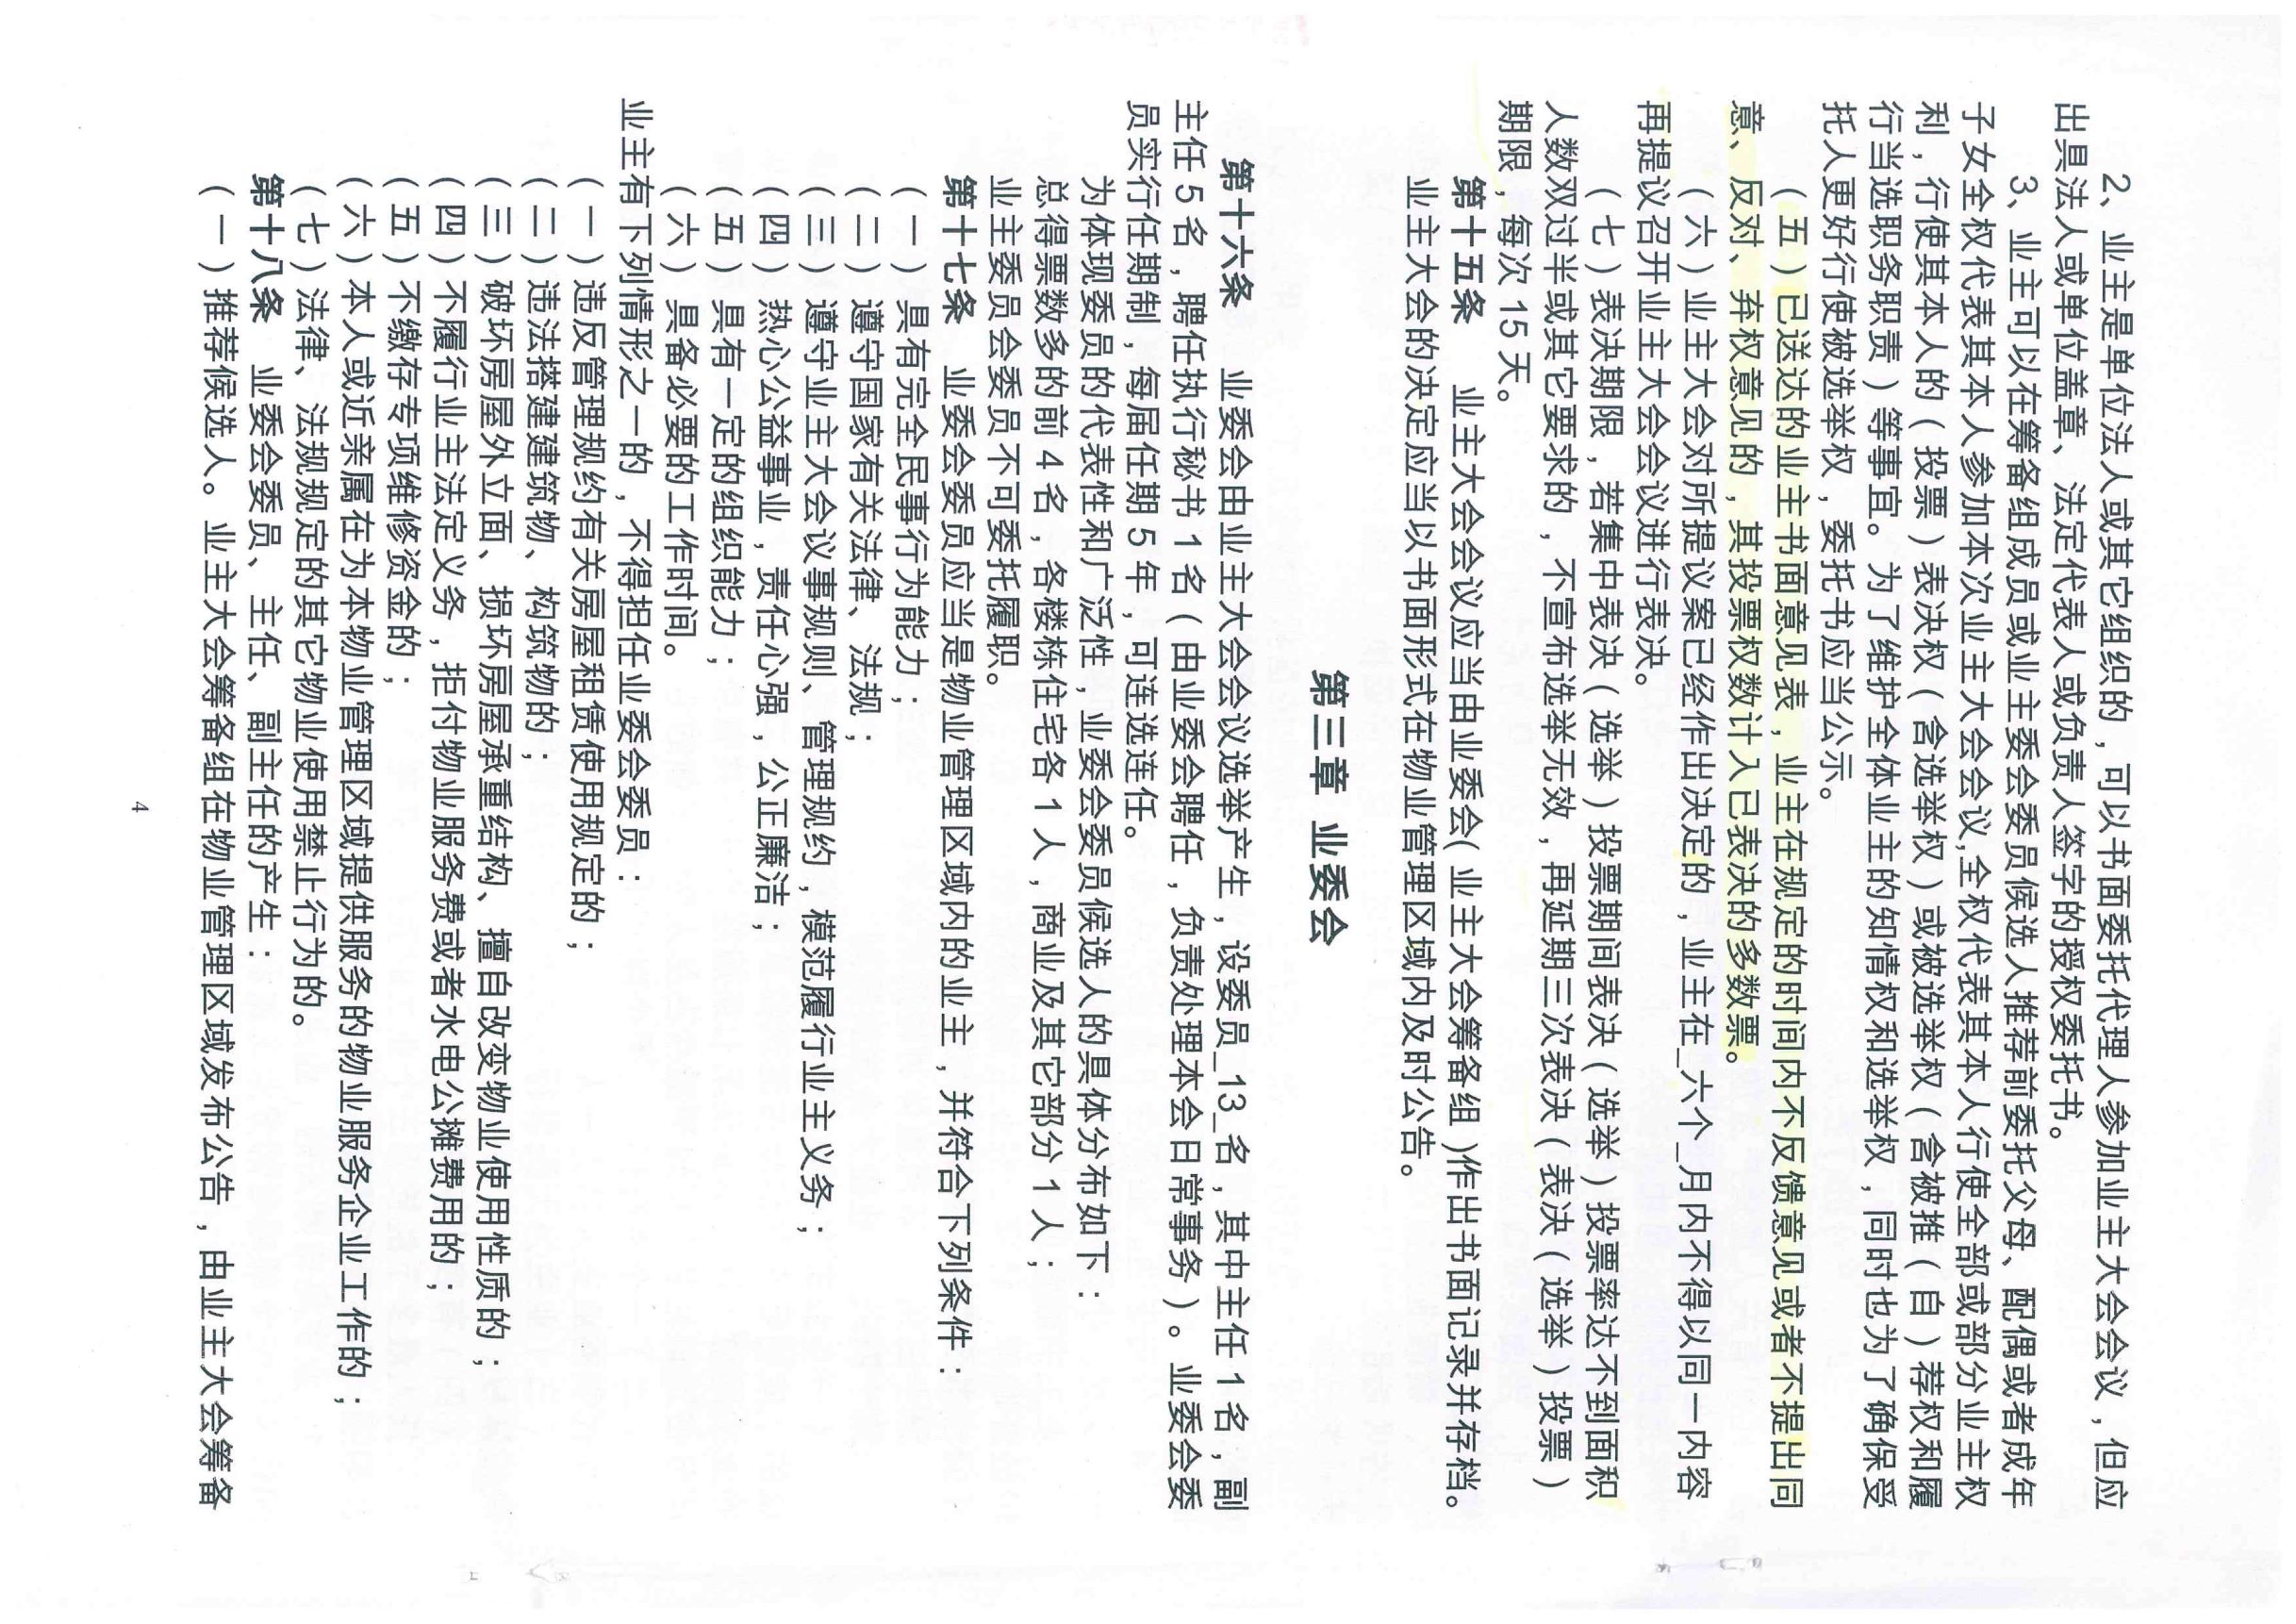 2、业主是单位法人或其它组织的，可以书面委托代理人参加业主大会会议，但应
出具法人或单位盖章、法定代表人或负责人签字的授权委托书。
3、业主可以在筹备组成员或业主委会委员候选人推荐前委托父母、配偶或者成年
子女全权代表其本人参加本次业主大会会议,全权代表其本人行使全部或部分业主权
利，行使其本人的（投票）表决权（含选举权）或被选举权（含被推（自）荐权和履
行当选职务职责）等事宜。为了维护全体业主的知情权和选举权，同时也为了确保受
托人更好行使被选举权，委托书应当公示。
（五）已送达的业主书面意见表，业主在规定的时间内不反馈意见或者不提出同
意、反对、弃权意见的，其投票权数计入已表决的多数票。
（六）业主大会对所提议案已经作出决定的，业主在_六个_月内不得以同一内容
再提议召开业主大会会议进行表决。
（七）表决期限，若集中表决（选举）投票期间表决（选举）投票率达不到面积
人数双过半或其它要求的，不宣布选举无效，再延期三次表决（表决（选举）投票）
期限，每次 15 天。
第十五条 业主大会会议应当由业委会( 业主大会筹备组 )作出书面记录并存档。
业主大会的决定应当以书面形式在物业管理区域内及时公告。
第三章 业委会
第十六条 业委会由业主大会会议选举产生，设委员_13_名，其中主任 1 名，副
主任 5 名，聘任执行秘书 1 名（由业委会聘任，负责处理本会日常事务）。业委会委
员实行任期制，每届任期 5 年，可连选连任。
为体现委员的代表性和广泛性，业委会委员候选人的具体分布如下：
总得票数多的前 4 名，各楼栋住宅各 1 人，商业及其它部分 1 人；
业主委员会委员不可委托履职。
第十七条 业委会委员应当是物业管理区域内的业主，并符合下列条件：
（一）具有完全民事行为能力；
（二）遵守国家有关法律、法规；
（三）遵守业主大会议事规则、管理规约，模范履行业主义务；
（四）热心公益事业，责任心强，公正廉洁；
（五）具有一定的组织能力；
（六）具备必要的工作时间。
业主有下列情形之一的，不得担任业委会委员：
（一）违反管理规约有关房屋租赁使用规定的；
（二）违法搭建建筑物、构筑物的；
（三）破坏房屋外立面、损坏房屋承重结构、擅自改变物业使用性质的；
（四）不履行业主法定义务，拒付物业服务费或者水电公摊费用的；
（五）不缴存专项维修资金的；
（六）本人或近亲属在为本物业管理区域提供服务的物业服务企业工作的；
（七）法律、法规规定的其它物业使用禁止行为的。
第十八条 业委会委员、主任、副主任的产生：
（一）推荐候选人。业主大会筹备组在物业管理区域发布公告，由业主大会筹备
4